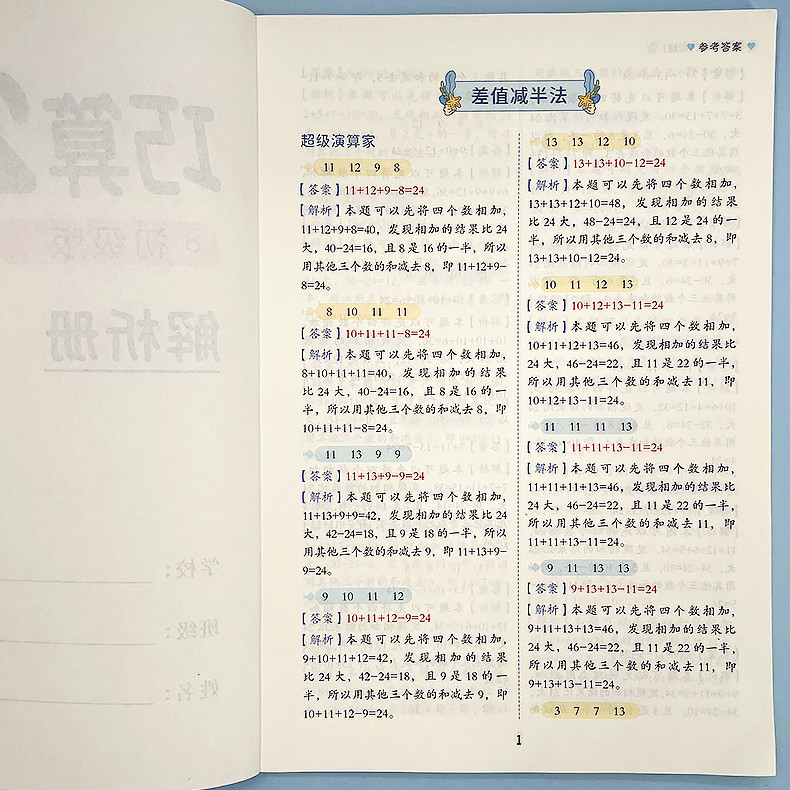 参考答案
差值减半法
超级演算家
11 12 9 8
【答案】11+12+9−8=24
【解析】本题可以先将四个数相加，
11+12+9+8=40，发现相加的结果比 24
大，40−24=16，且 8 是 16 的一半，所以
用其他三个数的和减去 8，即 11+12+9−
8=24。
8 10 11 11
【答案】10+11+11−8=24
【解析】本题可以先将四个数相加，
8+10+11+11=40，发现相加的结果
比 24 大，40−24=16，且 8 是 16 的一
半，所以用其他三个数的和减去 8，即
10+11+11−8=24。
11 13 9 9
【答案】11+13+9−9=24
【解析】本题可以先将四个数相加，
11+13+9+9=42，发现相加的结果比 24
大，42−24=18，且 9 是 18 的一半，所以
用其他三个数的和减去 9，即 11+13+9−
9=24。
9 10 11 12
【答案】10+11+12−9=24
【解析】本题可以先将四个数相加，
9+10+11+12=42，发现相加的结果
比 24 大，42−24=18，且 9 是 18 的一
半，所以用其他三个数的和减去 9，即
10+11+12−9=24。
13 13 12 10
【答案】13+13+10−12=24
【解析】本题可以先将四个数相加，
13+13+12+10=48，发现相加的结果
比 24 大，48−24=24，且 12 是 24 的一
半，所以用其他三个数的和减去 8，即
13+13+10−12=24。
10 11 12 13
【答案】10+12+13−11=24
【解析】本题可以先将四个数相加，
10+11+12+13=46，发现相加的结果比
24 大，46−24=22，且 11 是 22 的一半，
所以用其他三个数的和减去 11，即
10+12+13−11=24。
11 11 11 13
【答案】11+11+13−11=24
【解析】本题可以先将四个数相加，
11+11+11+13=46，发现相加的结果比
24 大，46−24=22，且 11 是 22 的一半，
所以用其他三个数的和减去 11，即
11+11+13−11=24。
9 11 13 13
【答案】9+13+13−11=24
【解析】本题可以先将四个数相加，
9+11+13+13=46，发现相加的结果比
24 大，46−24=22，且 11 是 22 的一半，
所以用其他三个数的和减去 11，即
9+13+13−11=24。
3 7 7 13
1
巧算2
初级版
解析册
学校：
班级：
姓名：